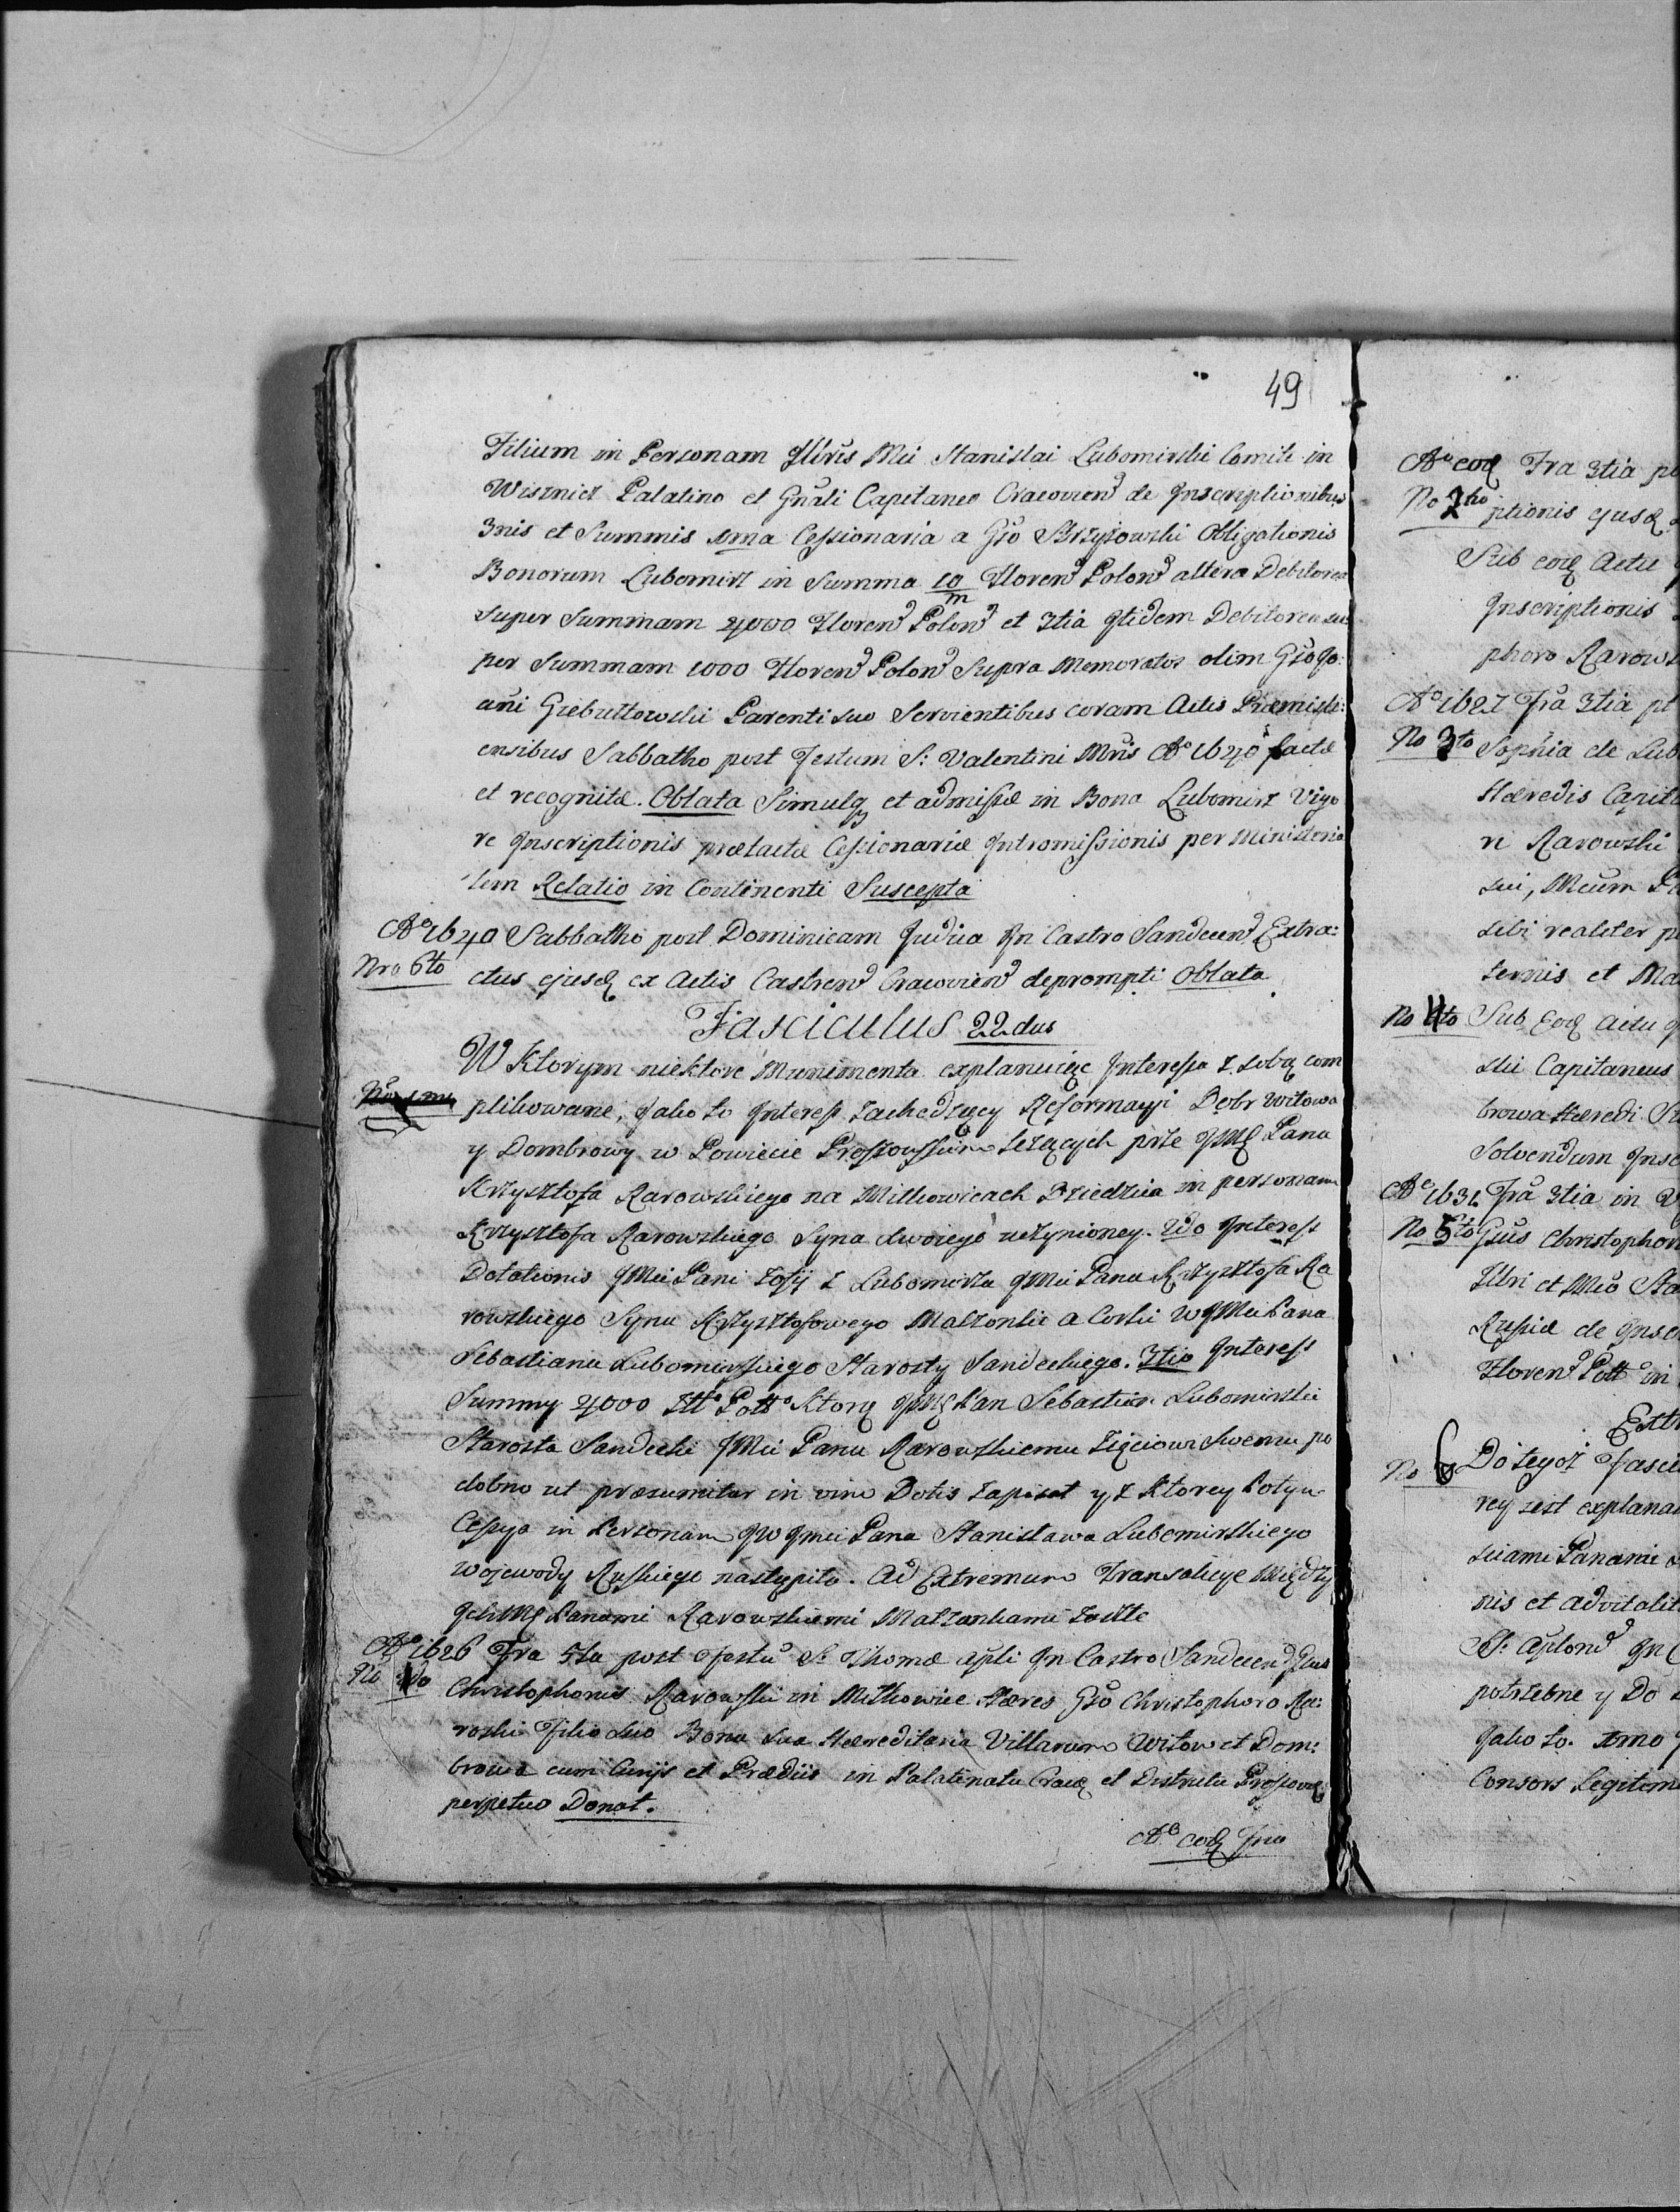 49
Filium in Personam Illris Mci Stanislai Lubomirskii Comiti in
Wisznicz Palatino et Gnali Capitaneo Cracovien de Inscriptionibus
3nis et Summis 1ma Cessionaria a Gso Strzyzowski Obligationis
Bonorum Lubomirz in Summa 10/m Floren Polon altera Debitorea
super Summam 4000 Floren Polon et 3tia itidem Debitorea su
per Summam 1000 Floren Polon Supra Memoratos olim Gso Jo:
anni Giebułtowski Parenti suo Servientibus coram Actis Præmisli:
ensibus Sabbatho post Festum S: Valentini Mris Ao 1640 factæ
et recognitæ. Oblata Simulq et admissæ in Bona Lubomirz Vigo
re Inscriptionis prætactæ Cessionariæ Intromissionis per Ministeria
lem Relatio in Continenti Suscepta
Ao 1640 Sabbatho post Dominicam Judica In Castro Sandecen Extra:
Nro 6to ctus ejusd ex Actis Castren Cracovien deprompti Oblata
Fasciculus 22dus
W Ktorym niektore Munimenta explanuiąc Interessa z sobą com
plikowane, Jako to Interess zachodzący Reformacyi Dobr Witowa
y Dombrowy w Powiecie Proszowskim leżących prze JMę Pana
Krzysztofa Rarowskiego na Mitkowicach Dziedzica in personam
Krzysztofa Rarowskiego Syna swoiego uczynioney. 2do Interess
Dotationis JMci Pani Zofij z Lubomirza JMci Pana Krzysztofa Ra
rowskiego Syna Krzysztofowego Małzonki a Corki WJMci Pana
Sebastiana Lubomirskiego Starosty Sandeckiego. 3tio Interess
Summy 4000 Złł Poll Ktorą JMę Pan Sebastian Lubomirski
Starosta Sandecki JMci Panu Rarowskiemu Zięciowi Swemu po
dobno ut præsumitur in vim Dotis zapisał y z Ktorey Potym
Cessya in Personam JW Jmci Pana Stanisława Lubomirskiego
Wojewody Ruskiego nastąpiła. Ad Extremum Transakcye Między
Ichmę Panami Rarowskiemi Małzonkami zaszłe
Ao 1626 Fra 5ta post Festu S. Thomæ Apli In Castro Sandecen Gsus
No Christophorus Rarowski in Mitkowice Hæres Gso Christophoro Ra:
roski Filio suo Bona sua Hæreditaria Villarum Witow et Dom:
browa cum Curijs et Prædiis in Palatinatu Crac et Districtu Proszovię
perpetuo Donat.
Ao eod Fra
Ao eod Fra 3tia po
No 2do ptionis ejusd
Sub eod Actu
Inscriptionis
phoro Rarows
Ao 1627 Fra 3tia pt
No 3to Sophia de Lub
Hæredis Capita
ri Rarowski
sui, Mcum P
sibi realiter p
ternis et Ma
No 4to Sub Eod Actu
ski Capitaneus
browa Hæredi
Solvendum Insc
Ao 1631 Fra 3tia in
No 5to Gsus Christophor
Illri et Mco Sta
Russiæ de Insc
Floren Poll in
Extr
No 6 Do tegoż Fascic
rey iest explana
sciami Panami
nis et advitalit
St: Aplon In C
potrzebne y Do
Jako to. 1mo
Consors Legitim